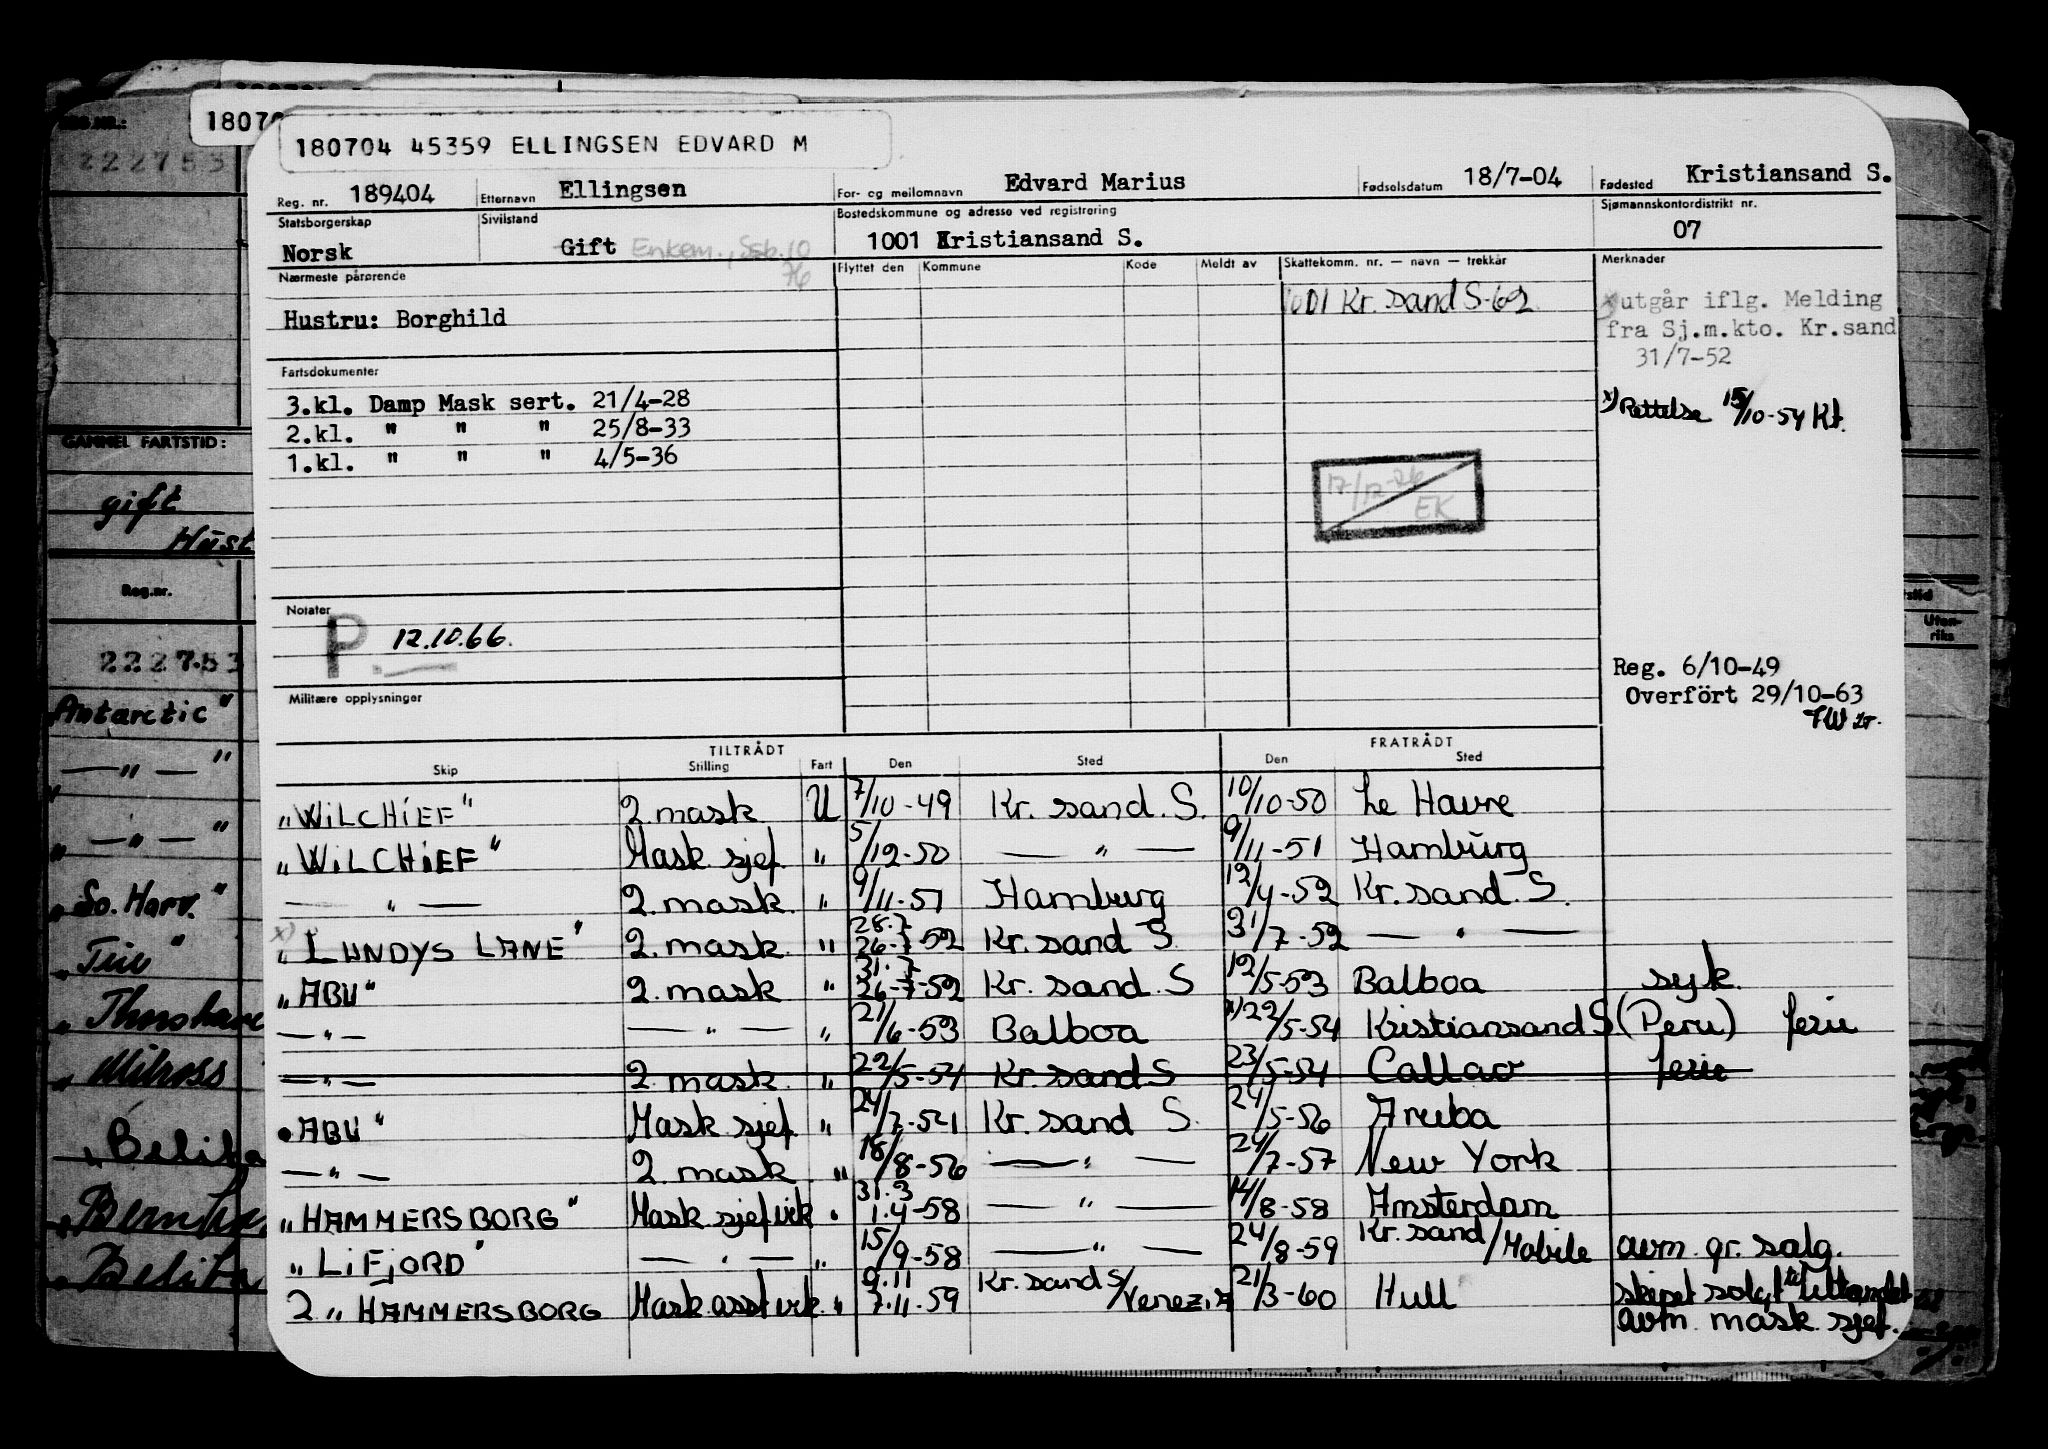 180704 45359 ELLINGSEN EDVARD M
Reg. nr. 189404 Etternavn Ellingsen For- og mellomnavn Edvard Marius Fødselsdatum 18/7-04 Fødested Kristiansand S.
Statsborgerskap Norsk Sivilstand Gift Enkem., Ssb. 10 76 Bostedskommune og adresse ved registrering 1001 Kristiansand S. Sjømannskontordistrikt nr. 07
Nærmeste pårørende Flyttet den Kommune Kode Meldt av Skattekomm. nr. — navn — trekkår Merknader
Hustru: Borghild
1001 Kr. sand S-62
x) utgår iflg. Melding
fra Sj.m.kto. Kr.sand
31/7-52
x) Rettelse 15/10-54 Kt.
Fartsdokumenter
3.kl. Damp Mask sert. 21/4-28
2.kl. " " " 25/8-33
1.kl. " " " 4/5-36
17/12-76
EK
Notater
P. 12.10.66.
Militære opplysninger
Reg. 6/10-49
Overfört 29/10-63
TILTRÅDT FRATRÅDT
Skip Stilling Fart Den Sted Den Sted
"WiLCHiEF" 2. mask U 7/10-49 Kr. sand. S. 10/10-50 Le Havre
"WiLCHiEF" Mask sjef " 5/12-50 — " — 9/11-51 Hamburg
— " — 2. mask. " 9/11-51 Hamburg 12/4-52 Kr. sand. S.
x) "LUNDYS LANE" 2. mask. " 28.7 26-7-52 Kr. sand S 31/7-52 — " —
"ABU" 2. mask " 31.7 26-7-52 Kr. sand. S 12/5-53 Balboa syk.
— " — — " — " 21/6-53 Balboa x) 22/5-54 Kristiansand S (Peru) ferie
— " — 2. mask. " 22/5-54 Kr. sand S 23/5-54 Callao ferie
"ABU" Mask sjef " 24/7-54 Kr. sand S. 24/5-56 Aruba
— " — 2. mask. " 18/8-56 — " — 24/7-57 New York
"HAMMERSBORG" Mask sjef vik " 31.3 1.4-58 — " — 14/8-58 Amsterdam
"LiFjORD" — " — " 15/9-58 — " — 24/8-59 Kr. sand/Mobile avm. gr. salg.
2 "HAMMERSBORG Mask asst vik. " 9.11 7.11.59 Kr. sand S/Venezia 21/3-60 Hull skipet solgt til utlandet
avm. mask. sjef.
1807
222753
GAMMEL FARTSTID:
gift
Hust
Reg.nr.
222753
Antarctic"
— " — "
" — " — "
"So. Harv."
"Milross
"Belita
"Belita
Uten-
riks